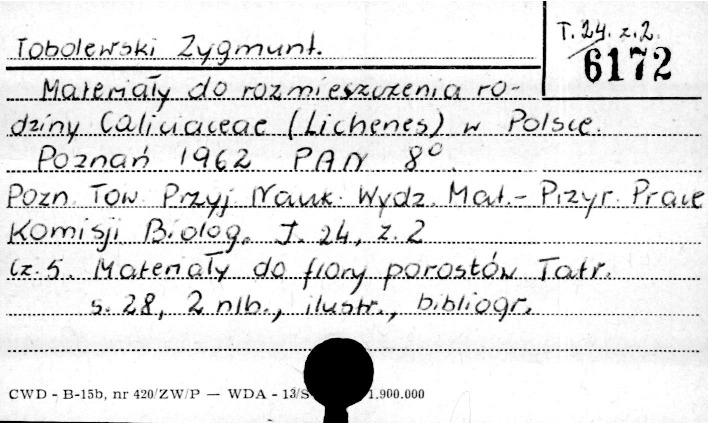 Tobolewski Zygmunt.
T. 24. z. 2.
6172
Materiały do rozmieszczenia ro-
dziny Caliciaceae (Lichenes) w Polsce.
Poznań 1962 PAN 8°.
Pozn. Tow. Przyj. Nauk. Wydz. Mat.- Przyr. Prace
Komisji Biolog. T. 24, z. 2
Cz. 5. Materiały do flory porostów Tatr.
s. 28, 2 nlb., ilustr., bibliogr.
CWD - B-15b, nr 420/ZW/P — WDA - 13/S 1.900.000